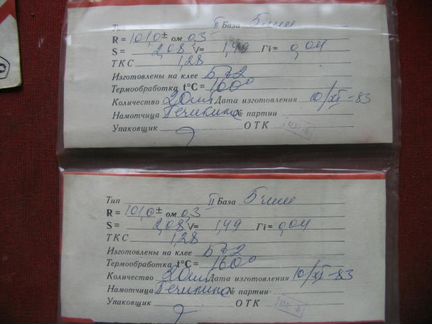 Тип II База 5 мм
R = 101,0 ± ом 0,3
S = 2,08 V= 1,49 Гi= 0,04
ТКС 1,28
Изготовлены на клее БФ2
Термообработка t°C = 160°
Количество 20 шт Дата изготовления 10/XI-83
Намотчица № партии
Упаковщик ОТК
Тип II База 5 мм
R = 101,0 ± ом 0,3
S = 2,08 V= 1,49 Гi= 0,04
ТКС 1,28
Изготовлены на клее БФ2
Термообработка t°C = 160°
Количество 20 шт Дата изготовления 10/XI-83
Намотчица № партии
Упаковщик ОТК